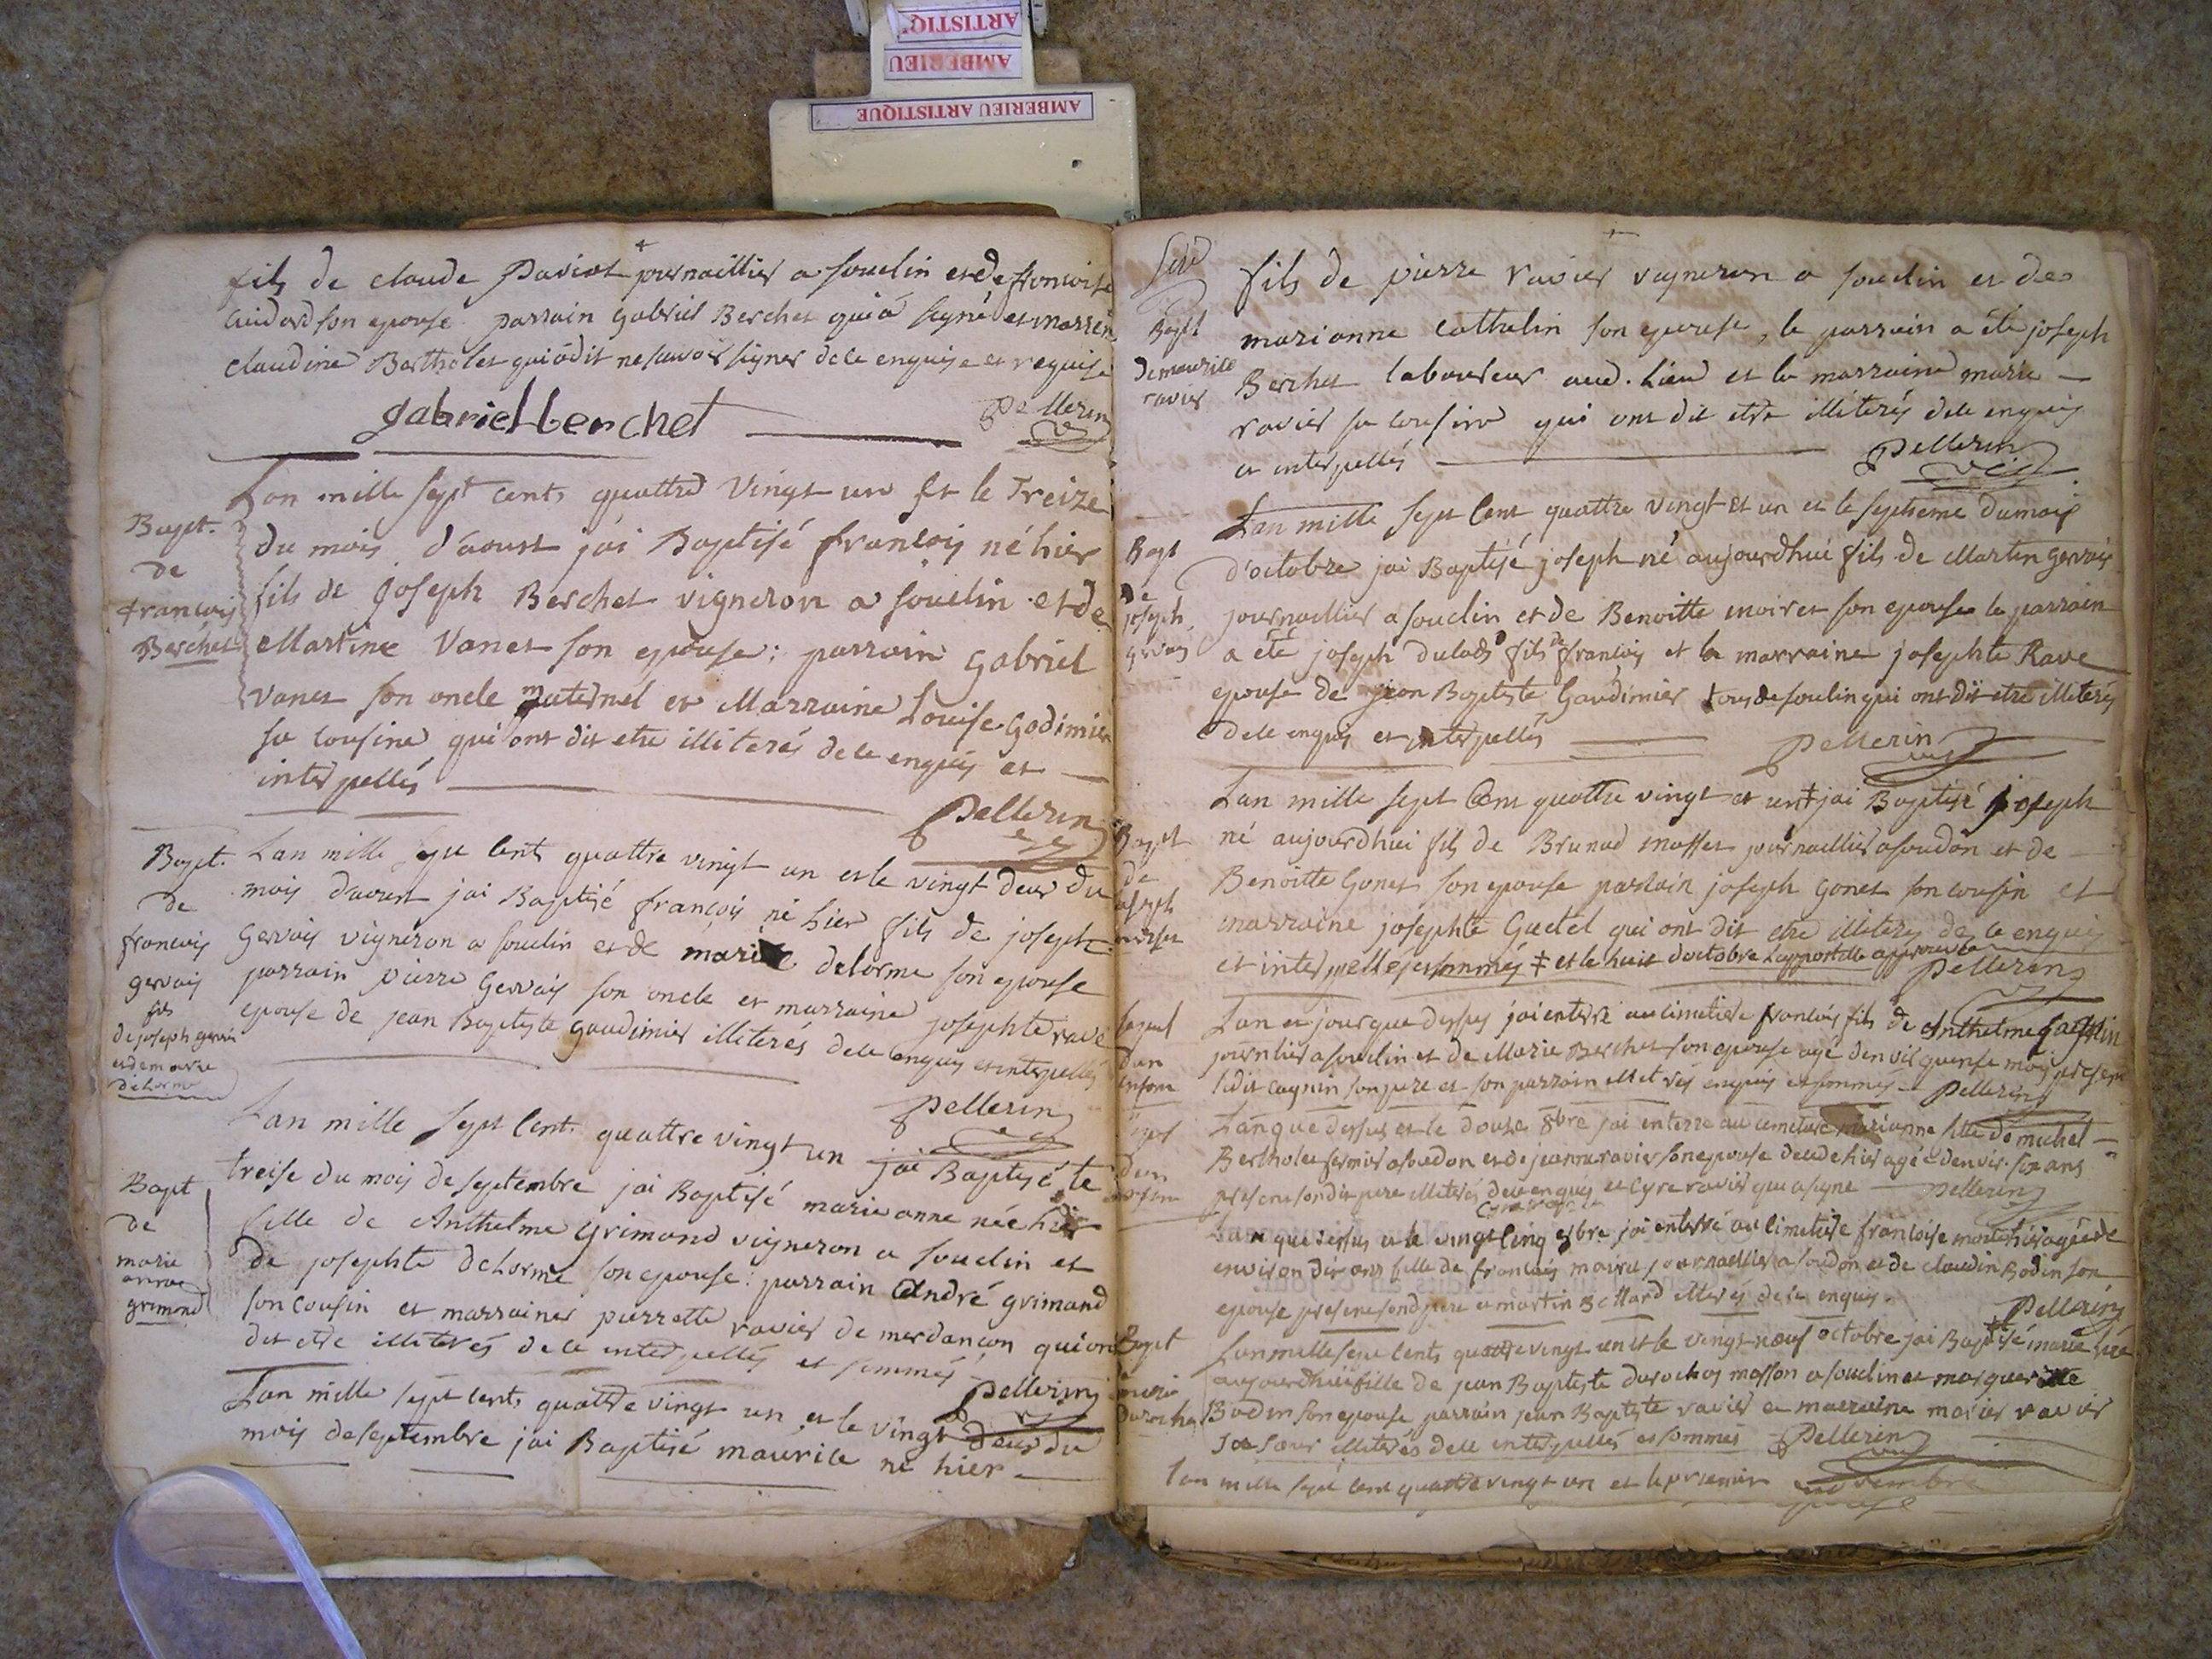 ARTISTIQ
AMBERIEU
AMBERIEU ARTISTIQUE
fils de claude Paviot journaillier a soudin et de francoise
son epouse parrain gabriel Berchet qui a signé et marrene
claudine Bertholet qui a dit ne savoir signer de ce enquise et requise
gabriel berchet
Pellerin
Lan mille sept cents quattre Vingt un et le Treize
Bapt.
de
francois
Berchet
du mois d'aoust jai Baptisé francois né hier
fils de joseph Berchet vigneron a soudin et de
Martine Vanet son epouse: parrain gabriel
vanet son oncle maternel et Marraine Louise godimier
sa cousine qui ont dit etre illiterés de ce enquis et
interpellés
Pellerin
Bapt.
de
francois
gervais
fils
de joseph gervais
et de marie
delorme
Lan mille sept cents quattre vingt un et le vingt deux du
mois daoust jai Baptisé francois né hier fils de joseph
gervais vigneron a soudin et de marie delorme son epouse
parrain pierre gervais son oncle et marraine josephte rave
epouse de jean Baptiste gaudimier illiterés de ce enquis et interpellés
Pellerin
Lan mille sept cents quattre vingt un jai Baptisé le
Bapt
de
marie
anne
grimond
treise du mois de septembre jai Baptisé marie anne née hier
fille de Anthelme grimond vigneron a soudin et
de josephte delorme son epouse: parrain André grimand
son cousin et marraine pierrette ravier de merdancon qui ont
dit etre illiterés de ce interpellés et sommés
Pellerin
Lan mille sept cents quattre vingt un et le vingt deux du
mois de septembre jai Baptisé maurice né hier
Bapt
de maurice
ravier
fils de pierre ravier vigneron a soudin et de
marianne cathelin son epouse, le parrain a été joseph
Berchet laboureur aud. lieu et la marraine marie
ravier sa cousine qui ont dit etre illiterés de ce enquis
et interpellés
Pellerin
Bapt
de
joseph
gervais
Lan mille sept cent quattre vingt et un et le septieme du mois
d'octobre jai Baptisé joseph né aujourdhui fils de Martin gervais
journaillier a soudin et de Benoitte moiret son epouse le parrain
a été joseph fils de francois et la marraine josephte Rave
epouse de jean Baptiste Gaudimier tous de soudin qui ont dit etre illiterés
de ce enquis et interpellés
Pellerin
Bapt
de
joseph
Lan mille sept Cent quattre vingt et un ‡ jai Baptisé joseph
né aujourdhui fils de Brunod mosset journaillier a soudon et de
Benoitte Gonet son epouse parrain joseph gonet son cousin et
marraine josephte Guetel qui ont dit etre illiteres de ce enquis
et interpellés et sommés ‡ et le huit doctobre approuvée
Pellerin
d'un
enfant
Lan et jour que dessus jai enterré au cimetiere francois fils de Anthelme
journlier a soudin et de Marie Berchet son epouse agé denvir quense mois present
ledit son pere et son parrain illiterés enquis et sommés
Pellerin
d'un
Lan que dessus et le douse 8bre jai enterré au cimetiere marianne fille de michel
Bertholet fermier a soudon et de jeanne ravier son epouse decede hier agé denvir six ans
present son dit pere illiterés de ce enquis et Cyre ravier qui a signe
Pellerin
Lan que dessus et le vingt cinq 8bre jai enterré au cimetiere francoise morte hier agée de
environ dix ans fille de francois moiret journaillier a soudon et de claudin Bodin son
epouse present sond pere et martin illiterés de ce enquis
Pellerin
Bapt
marie
durochat
Lan mille sept cents quattre vingt un et le vingt neuf octobre jai Baptisé marie née
aujourdhui fille de jean Baptiste durochat masson a soudin et marguerite
Bodin son epouse parrain jean Baptiste ravier et marraine marie ravier
sa soeur illiterés de ce interpellés et sommés
Pellerin
Lan mille sept cent quattre vingt un et le premier novembre